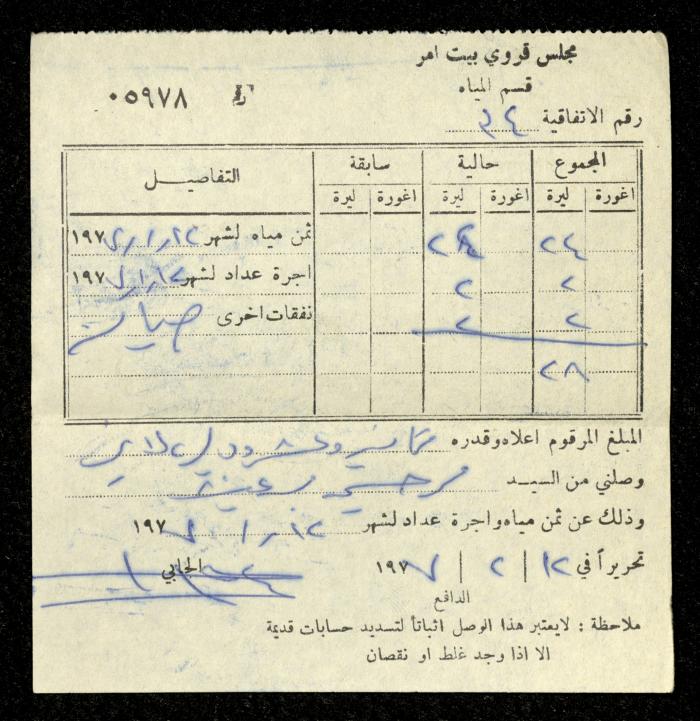 مجلس قروي بيت امر
قسم المياه
٠٥٩٧٨
رقم الاتفاقية ٣٤
التفاصيل سابقة حالية المجموع
ليرة اغورة ليرة اغورة ليرة اغورة
ثمن مياه لشهر ١٢ ر ١ ر ١٩٧ ٢٤ ٢٤
اجرة عداد لشهر ١٢ ر ١ ر ١٩٧ ٢ ٢
نفقات اخرى صيانة ٢ ٢
٢٨
المبلغ المرقوم اعلاه وقدره ثمانية وعشرون ليرة
وصلني من السيد
وذلك عن ثمن مياه واجرة عداد لشهر ١٢ ر ١ ١٩٧
تحريراً في ١٢ / ٢ / ١٩٧٧
الجابي
الدافع
ملاحظة : لايعتبر هذا الوصل اثباتاً لتسديد حسابات قديمة
الا اذا وجد غلط او نقصان